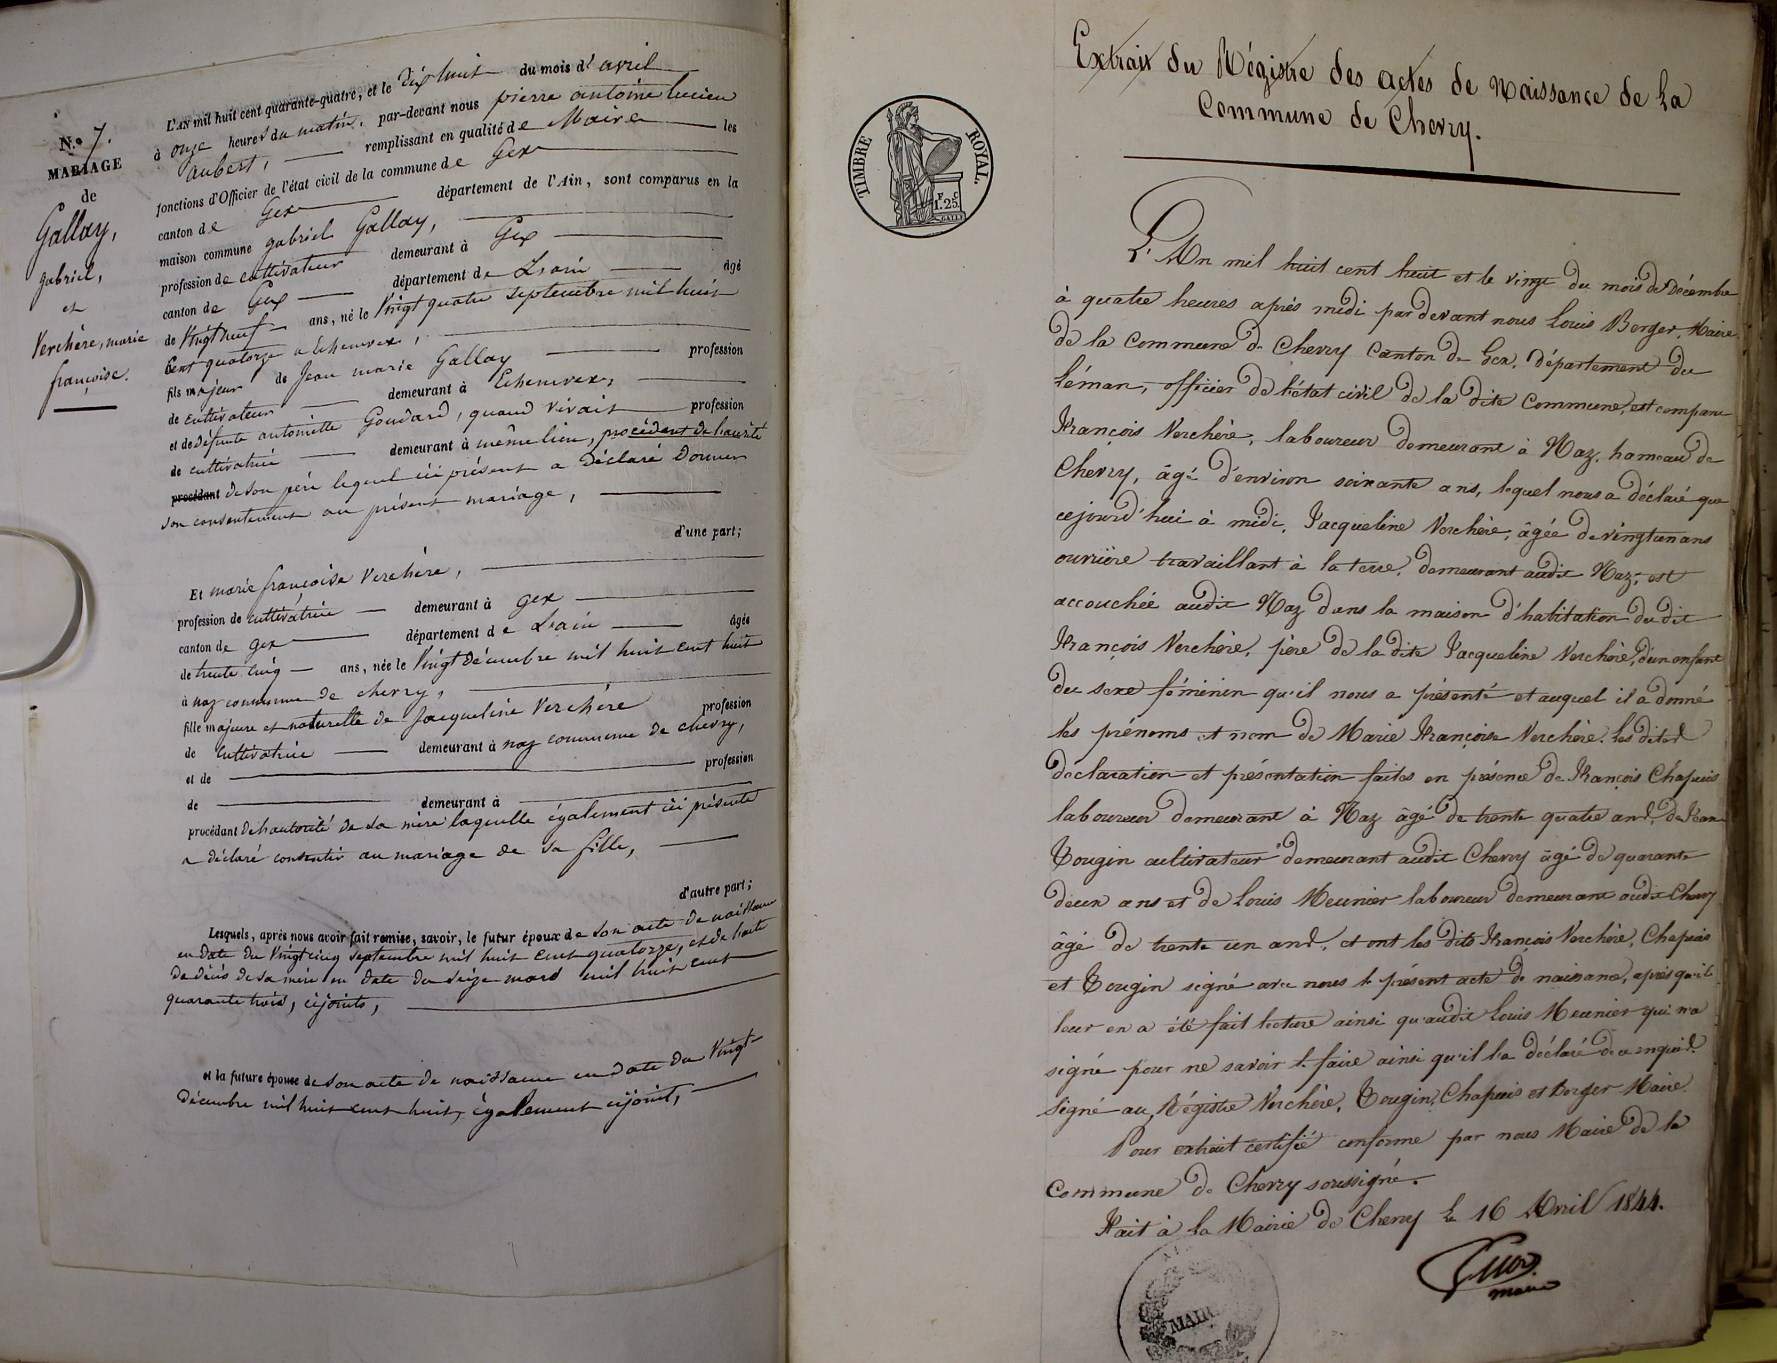 N.o 7.
MARIAGE
de
Gallay,
gabriel,
et
Verchère, marie
françoise.
L'AN mil huit cent quarante-quatre, et le dix huit du mois d'avril
à onze heures du matin, par-devant nous pierre antoine lucien
aubert, remplissant en qualité de Maire les
fonctions d'Officier de l'état civil de la commune de Gex
canton de Gex département de l'Ain, sont comparus en la
maison commune gabriel Gallay,
profession de cultivateur demeurant à Gex
canton de Gex département de L'ain âgé
de Vingt neuf ans, né le Vingt quatre septembre mil huit
Cent quatorze a Echenevex,
fils majeur de Jean marie Gallay profession
de cultivateur demeurant à Echenevex,
et de défunte antoinette Goudard, quand vivait profession
de cultivatrice demeurant à même lieu, procédant de l'autorité
procédant de son père lequel ici présent a déclaré donner
son consentement au présent mariage,
d'une part;
Et marie françoise Verchère,
profession de cultivatrice demeurant à gex
canton de gex département de L'ain âgée
de trente cinq ans, née le Vingt décembre mil huit cent huit
à naz commune de chevry,
fille majeure et naturelle de Jacqueline Verchère profession
de cultivatrice demeurant à naz commune de chevry,
et de profession
de demeurant à
procédant de l'autorité de sa mère laquelle également ici présente
a déclaré consentir au mariage de sa fille,
d'autre part;
Lesquels, après nous avoir fait remise, savoir, le futur époux de son acte de naissance
en date du Vingt cinq septembre mil huit cent quatorze, et de l'acte
de décès de sa mère en date du seize mars mil huit cent
quarante trois, cijoints,
et la future épouse de son acte de naissance en date du Vingt
décembre mil huit cent huit, également cijoint,
TIMBRE ROYAL.
F. C.
1.25.
Extrait du Régistre des actes de Naissance de La
Commune de Chevry.
L'An mil huit cent huit et le vingt du mois de Décembre
à quatre heures après midi par devant nous Louis Berger, Maire
de la Commune de Chevry Canton de Gex, département du
Léman, officier de l'état civil de la dite Commune, est comparu
François Verchère, laboureur demeurant à Naz, hameau de
Chevry, âgé d'environ soixante ans, lequel nous a déclaré que
cejourd'hui à midi, Jacqueline Verchère, âgée de vingt un ans
ouvrière travaillant à la terre, demeurant audit Naz, est
accouchée audit Naz dans la maison d'habitation du dit
François Verchère, père de la dite Jacqueline Verchère, d'un enfant
du sexe féminin qu'il nous a présenté et auquel il a donné
les prénoms et nom de Marie Françoise Verchère. Les dites
déclaration et présentation faites en présence de François Chapuis
laboureur demeurant à Naz âgé de trente quatre ans, de Jean
Bougin cultivateur demeurant audit Chevry âgé de quarante
deux ans et de Louis Meunier laboureur demeurant audit Chevry
âgé de trente un ans, et ont les dits François Verchère, Chapuis
et Bougin signé avec nous le présent acte de naissance, après qu'il
leur en a été fait lecture ainsi qu'audit Louis Meunier qui n'a
signé pour ne savoir le faire ainsi qu'il l'a déclaré de ce enquis.
Signé au Régistre Verchère, Bougin, Chapuis et Berger Maire.
Pour extrait certifié conforme par nous Maire de la
Commune de Chevry soussigné.
Fait à la Mairie de Chevry le 16 Avril 1844.
maire
MAIRIE